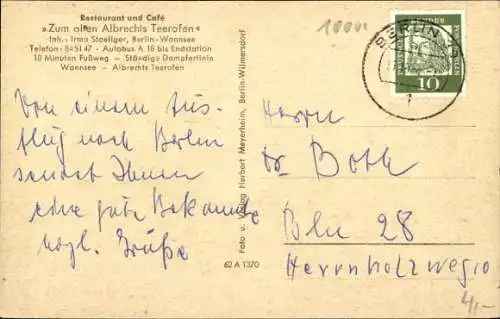 Restaurant und Café
»Zum alten Albrechts Teerofen«
Inh.: Irma Staeliger, Berlin-Wannsee
Telefon: 8451 47 - Autobus A 18 bis Endstation
10 Minuten Fußweg - Ständige Dampferlinie
Wannsee - Albrechts Teerofen
Von einem Aus-
flug nach Berlin
sendet Ihnen
eine gute Bekannte
vozgl. Grüße
Foto u. Verlag Herbert Meyerheim, Berlin-Wilmersdorf
62 A 1370
BERLIN
10
Herrn
Dr Both
Bln 28
Herrnholzweg 10
4,-